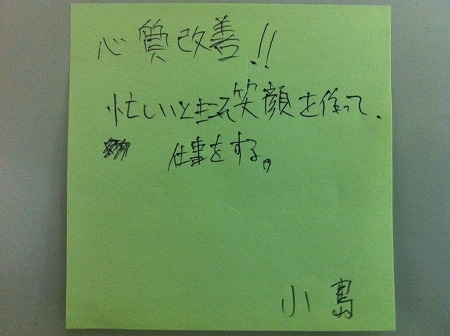 心質改善!!
忙しいときこそ笑顔を作って、
仕事をする。
小島